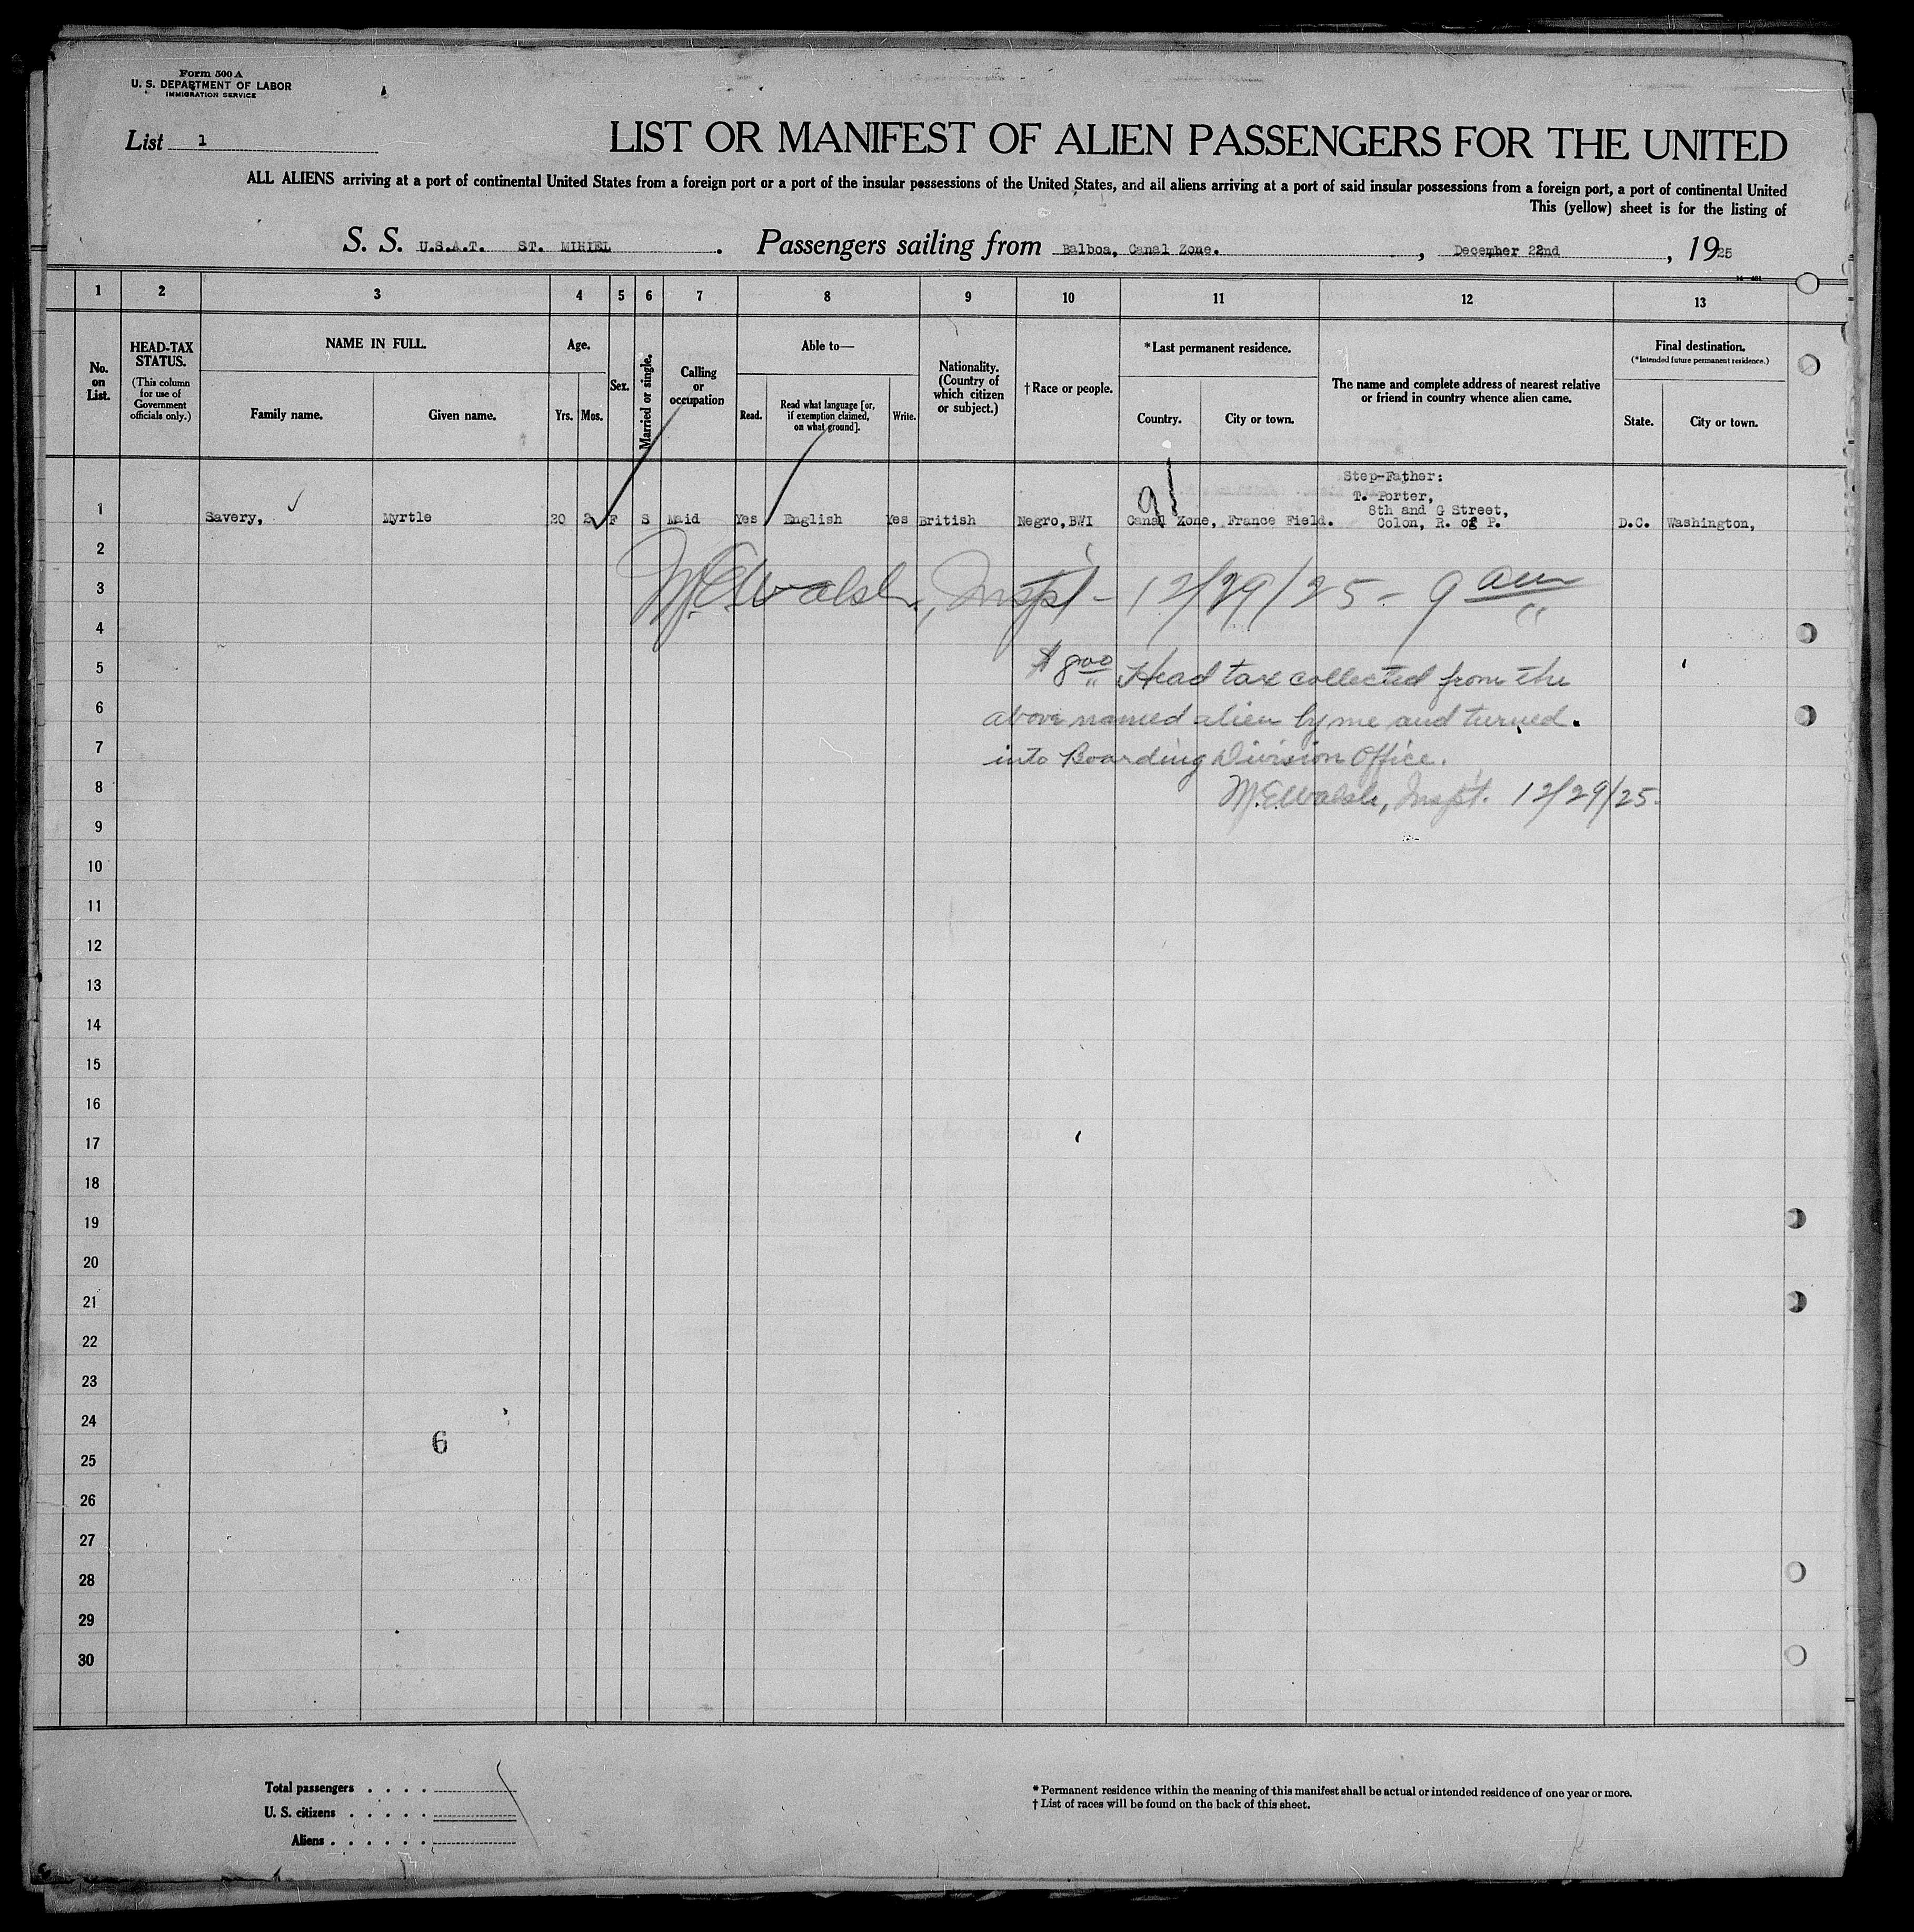 Form 500 A
U. S. DEPARTMENT OF LABOR
IMMIGRATION SERVICE
List 1
LIST OR MANIFEST OF ALIEN PASSENGERS FOR THE UNITED
ALL ALIENS arriving at a port of continental United States from a foreign port or a port of the insular possessions of the United States, and all aliens arriving at a port of said insular possessions from a foreign port, a port of continental United
This (yellow) sheet is for the listing of
S. S. U.S.A.T. ST. MIHIEL . Passengers sailing from Balboa, Canal Zone. , December 22nd , 1925
1 2 3 4 5 6 7 8 9 10 11 12 13
No. on List.
HEAD-TAX STATUS.
(This column for use of Government officials only.)
NAME IN FULL.
Family name.
Given name.
Age.
Yrs.
Mos.
Sex.
Married or single.
Calling or occupation
Able to—
Read.
Read what language [or, if exemption claimed, on what ground].
Write.
Nationality. (Country of which citizen or subject.)
† Race or people.
* Last permanent residence.
Country.
City or town.
The name and complete address of nearest relative or friend in country whence alien came.
Final destination.
(* Intended future permanent residence.)
State.
City or town.
Step-Father:
T. Porter,
8th and G Street,
1 Savery, Myrtle 20 2 F S Maid Yes English Yes British Negro, BWI Canal Zone, France Field. Colon, R. of P. D.C. Washington,
2
3 M.E. Walsh, Inspt - 12/29/25 - 9 am
4
5 $8.00 Head tax collected from the
6 above named alien by me and turned
7 into Boarding Division Office.
8 M.E. Walsh, Inspt. 12/29/25.
9
10
11
12
13
14
15
16
17
18
19
20
21
22
23
24
6
25
26
27
28
29
30
Total passengers . . . .
U. S. citizens . . . . .
Aliens . . . . . .
* Permanent residence within the meaning of this manifest shall be actual or intended residence of one year or more.
† List of races will be found on the back of this sheet.